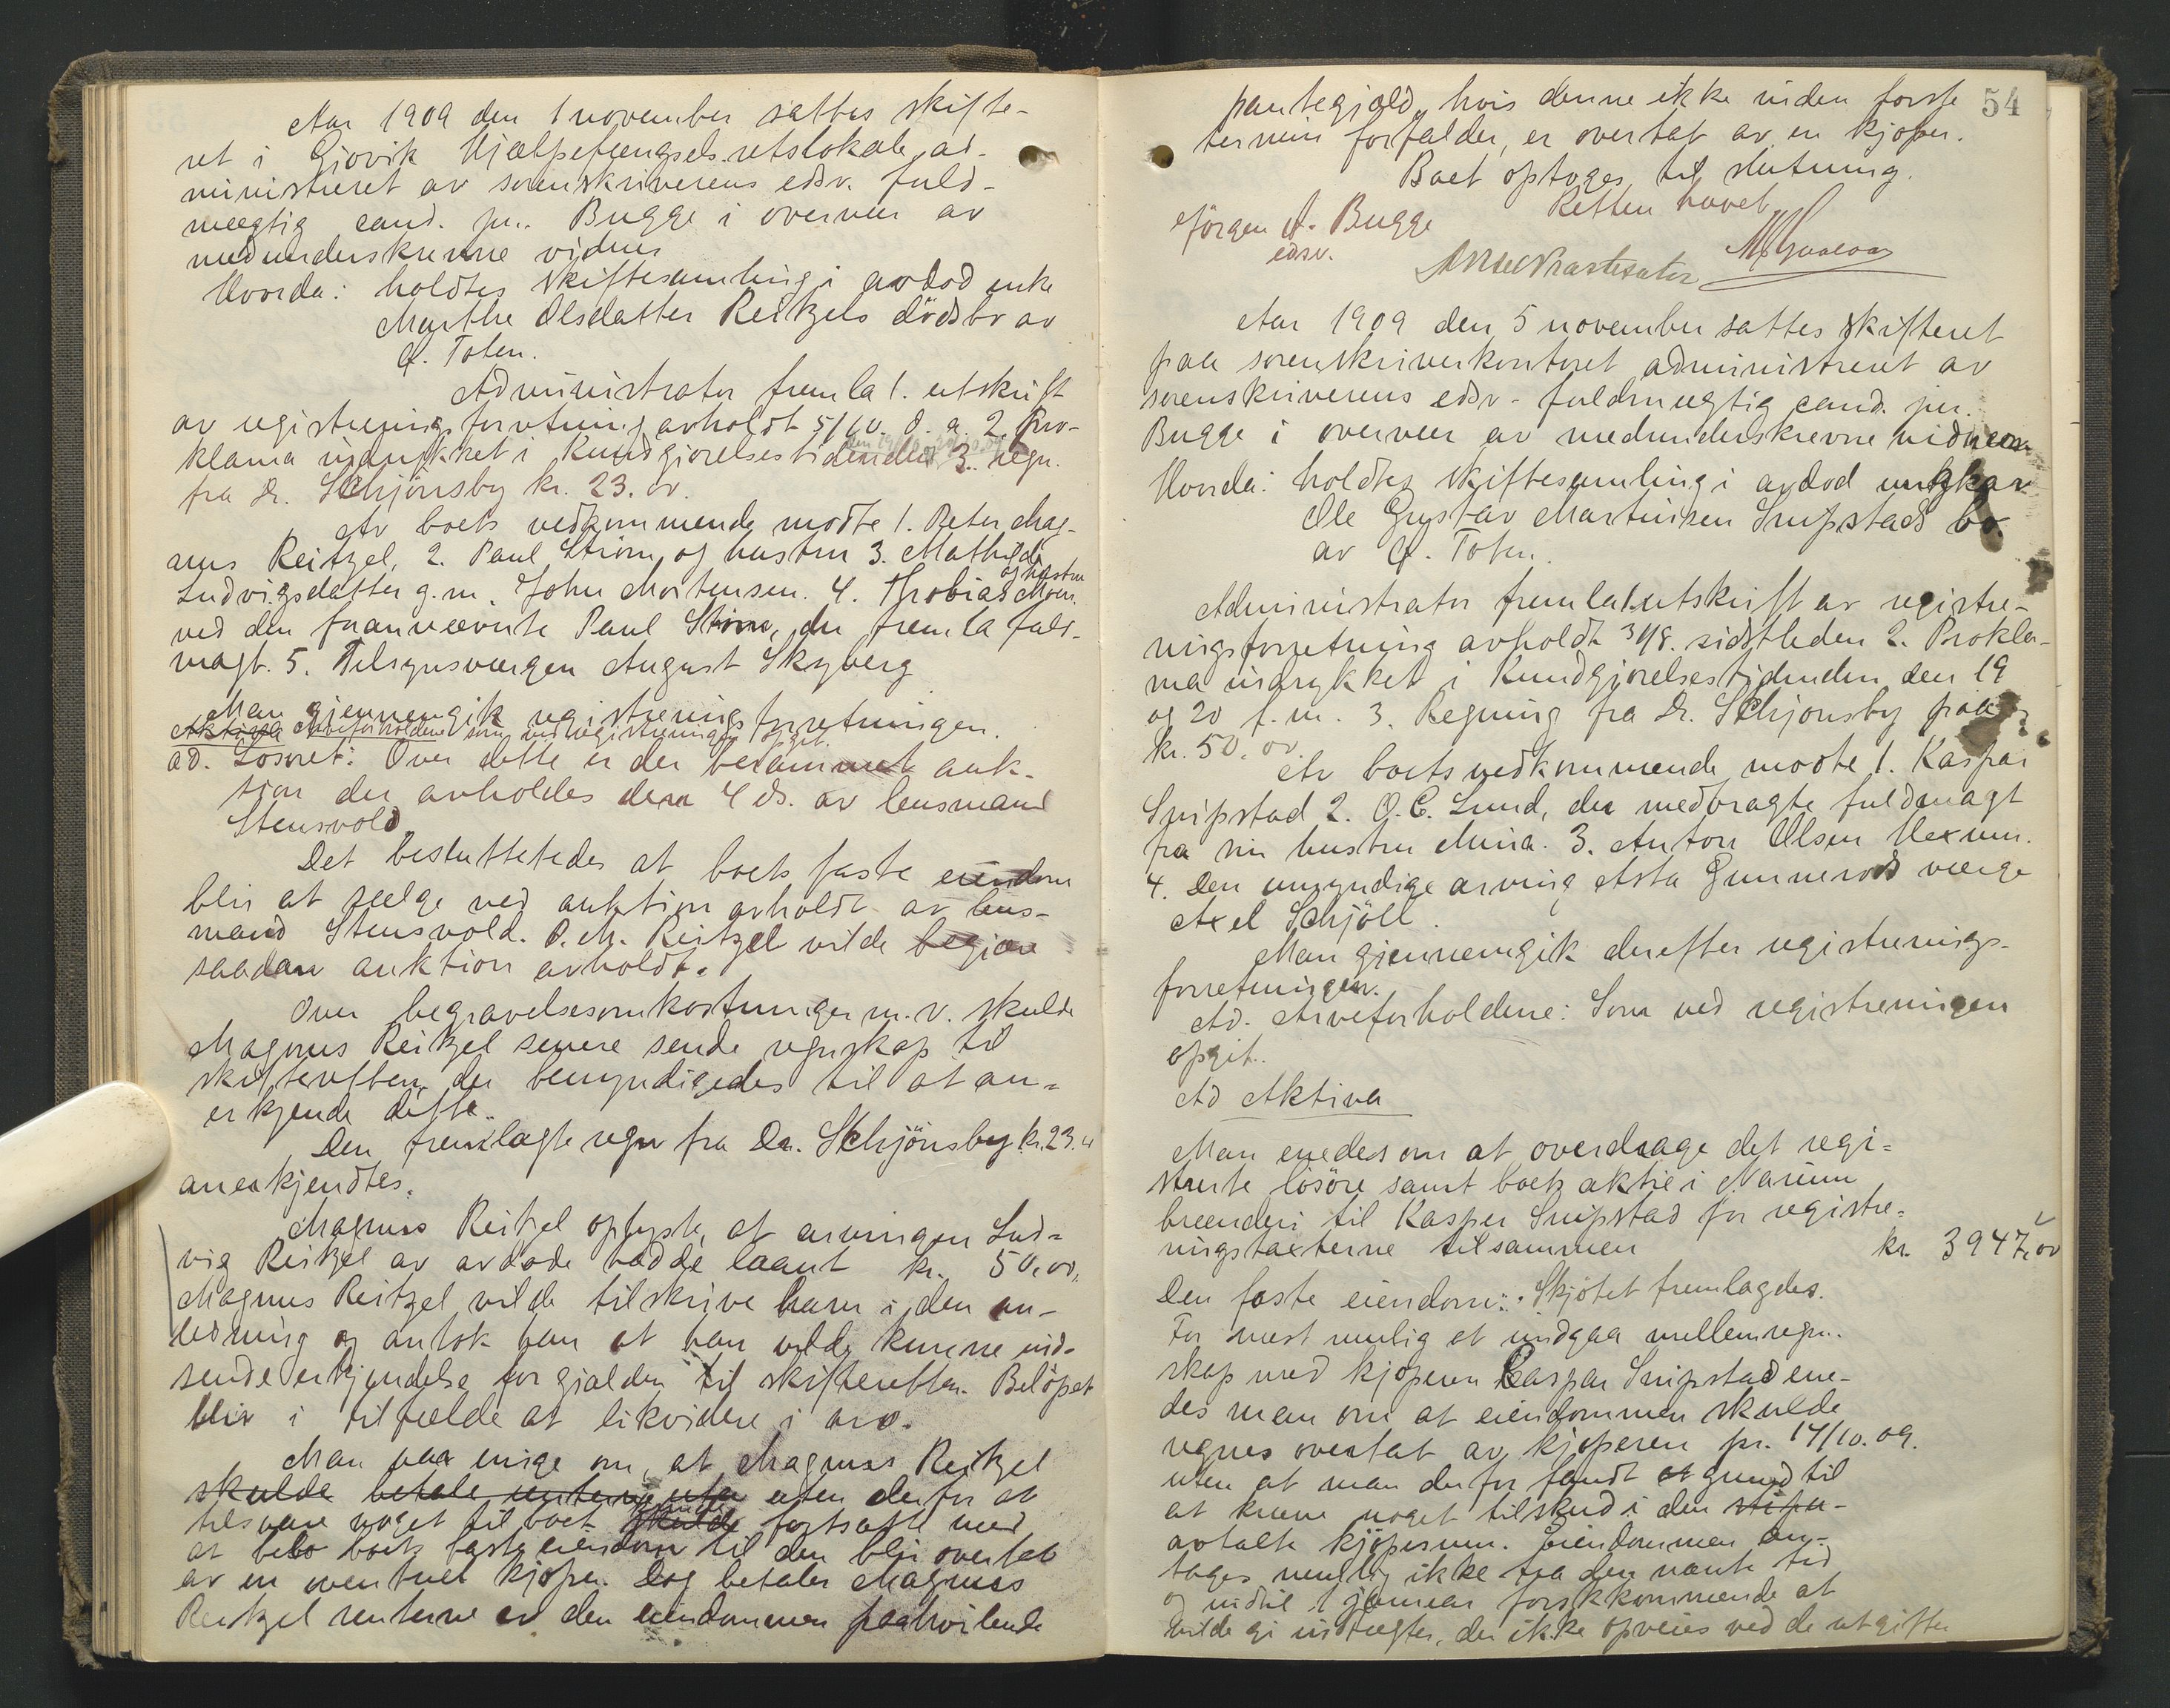 Aar 1909 den 1 november sattes skifte-
ret i Gjøvik Hjælpefængsels retslokale, ad-
ministreret av sorenskriverens edsv. fuld-
mægtig cand. jur. Bugge i overvær av
medunderskrevne vidner
Hvorda: holdtes skiftesamling i avdød enke
Marthe Olsdatter Reitzels dødsbo av
Ø. Toten.
Administrator fremla 1. utskrift
av registreringsforretning avholdt 5/10. d. a. 2. Pro-
klama indrykket i Kundgjørelsestidenden 3. regn.
fra Dr. Schjönsby kr. 23.00.
Av boets vedkommende mødte 1. Peter Mag-
nus Reitzel, 2. Paul Strøm og hustru 3. Mathilde
Ludvigsdatter g.m. John Mortensen. 4. Thobias Moen
og hustru
ved den foannævnte Paul Strøm, der fremla fuld-
magt. 5. Tilsynsværgen August Skyberg
Man gjennemgik registreringsforretningen.
Aktiva Arveforholdene som ved registreringen opgit.
ad. Løsøret: Over dette er der berammet auk-
tion der avholdes den 4 ds. av lensmand
Stensvold
Det besluttetedes at boets faste eiendom
blir at sælge ved auktion avholdt av lens-
mand Stensvold. P. M. Reitzel vilde begjære
saadan auktion avholdt.
Over begravelsesomkostninger m.v. skulde
Magnus Reitzel senere sende regnskap til
skifteretten, der bemyndigedes til at an-
erkjende dette.
Den fremlagte regn fra Dr. Schjönsby kr. 23.00
anerkjendtes.
Magnus Reitzel oplyste, at arvingen Lud-
vig Reitzel av avdøde hadde laant kr. 50,00,
Magnus Reitzel vilde tilskrive ham i den an-
ledning og antok han at han vilde kunne ind-
sende erkjendelse for gjælden til skifteretten. Beløpet
blir i tilfælde at likvidere i arv.
Man var enige om, at Magnus Reitzel
skulde betale renterne uten derfor at
tilsvare noget til boet skulde fortsætte med
at bebo boets faste eiendom til den blir overtat
av en eventuel kjøper. Dog betaler Magnus
Reitzel renterne av den eiendommen paahvilende
54
pantegjæld, hvis denne ikke inden første
termin forfalder, er overtat av en kjøper.
Boet optoges til slutning.
Retten hævet
Jörgen A. Bugge
edsv.
Aar 1909 den 5 november sattes skifteret
paa sorenskriverkontoret administreret av
sorenskriverens edsv- fuldmægtig cand. jur.
Bugge i overvær av medunderskrevne vidner
Hvorda: holdtes skiftesamling i avdød ungkar
Ole Gustav Martinsen Snipstads bo.
av Ø. Toten.
Administrator fremla 1. utskrift av registre-
ringsforretning avholdt 31/8. sidstleden 2. Prokla-
ma indrykket i Kundgjørelsestidenden den 19
og 20 f.m. 3. Regning fra Dr. Schjønsby paa
kr. 50.00
Av boets vedkommende mødte 1. Kaspar
Snipstad 2. O. C. Lund, der medbragte fuldmagt
fra sin hustru Mina. 3. Anton Olsen Hexum.
4. Den umyndige arving Asta Gunnerøds værge
Axel Schjöll.
Man gjennemgik derefter registrerings-
forretningen.
Ad. Arveforholdene: Som ved registreringen
opgit.
Ad Aktiva
Man enedes om at overdrage det regi-
strerte løsøre samt boets aktie i Narum
brænderi til Kasper Snipstad for registre-
ringstaxterne tilsammen kr. 3947,00
Den faste eiendom: Skjøtet fremlagdes.
For mest mulig at undgaa mellemregn-
skap med kjøperen Kaspar Snipstad ene-
des man om at eiendommen skulde
regnes overtat av kjøperen pr. 14/10.09.
uten at man derfor fandt at grund til
at kræve noget tilskud i den stipu-
avtalte kjøpesum. Eiendommen an-
tages nemlig ikke fra den nævnte tid
og indtil 1 januar førstkommende at
vilde gi indtægter, der ikke opveies ved de utgifter